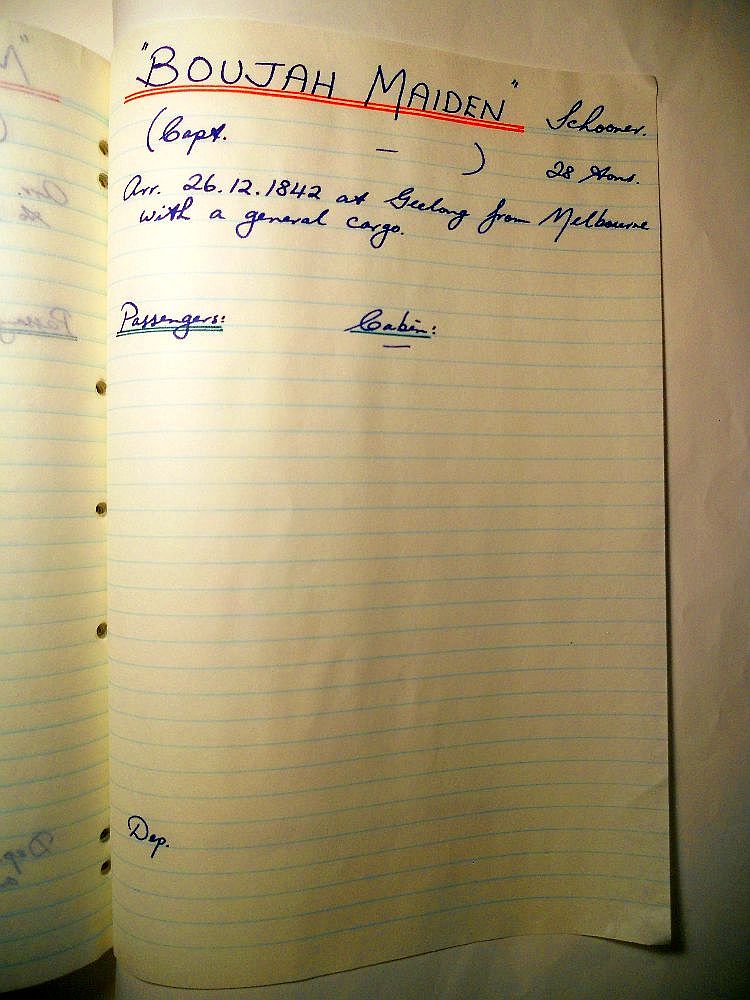 "BOUJAH MAIDEN" Schooner.
(Capt. – ) 28 tons.
Arr. 26.12.1842 at Geelong from Melbourne
with a general cargo.
Passengers: Cabin:
—
Dep.